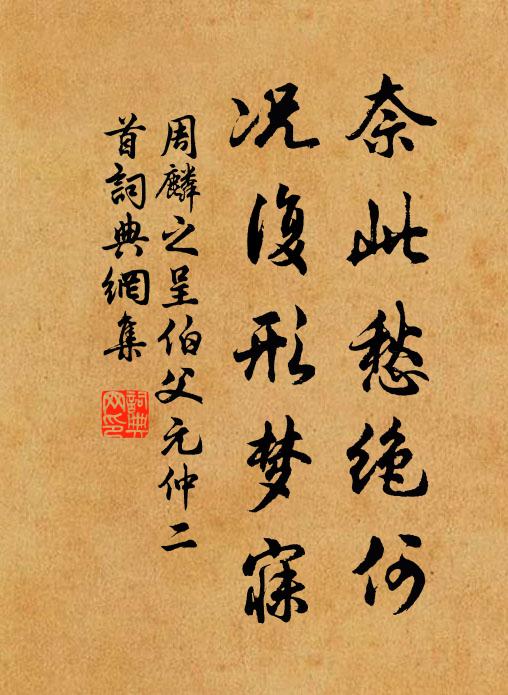 奈此愁絶何
况復形梦寐
周麟之呈伯父元仲二
首詞典網集
詞典
网印